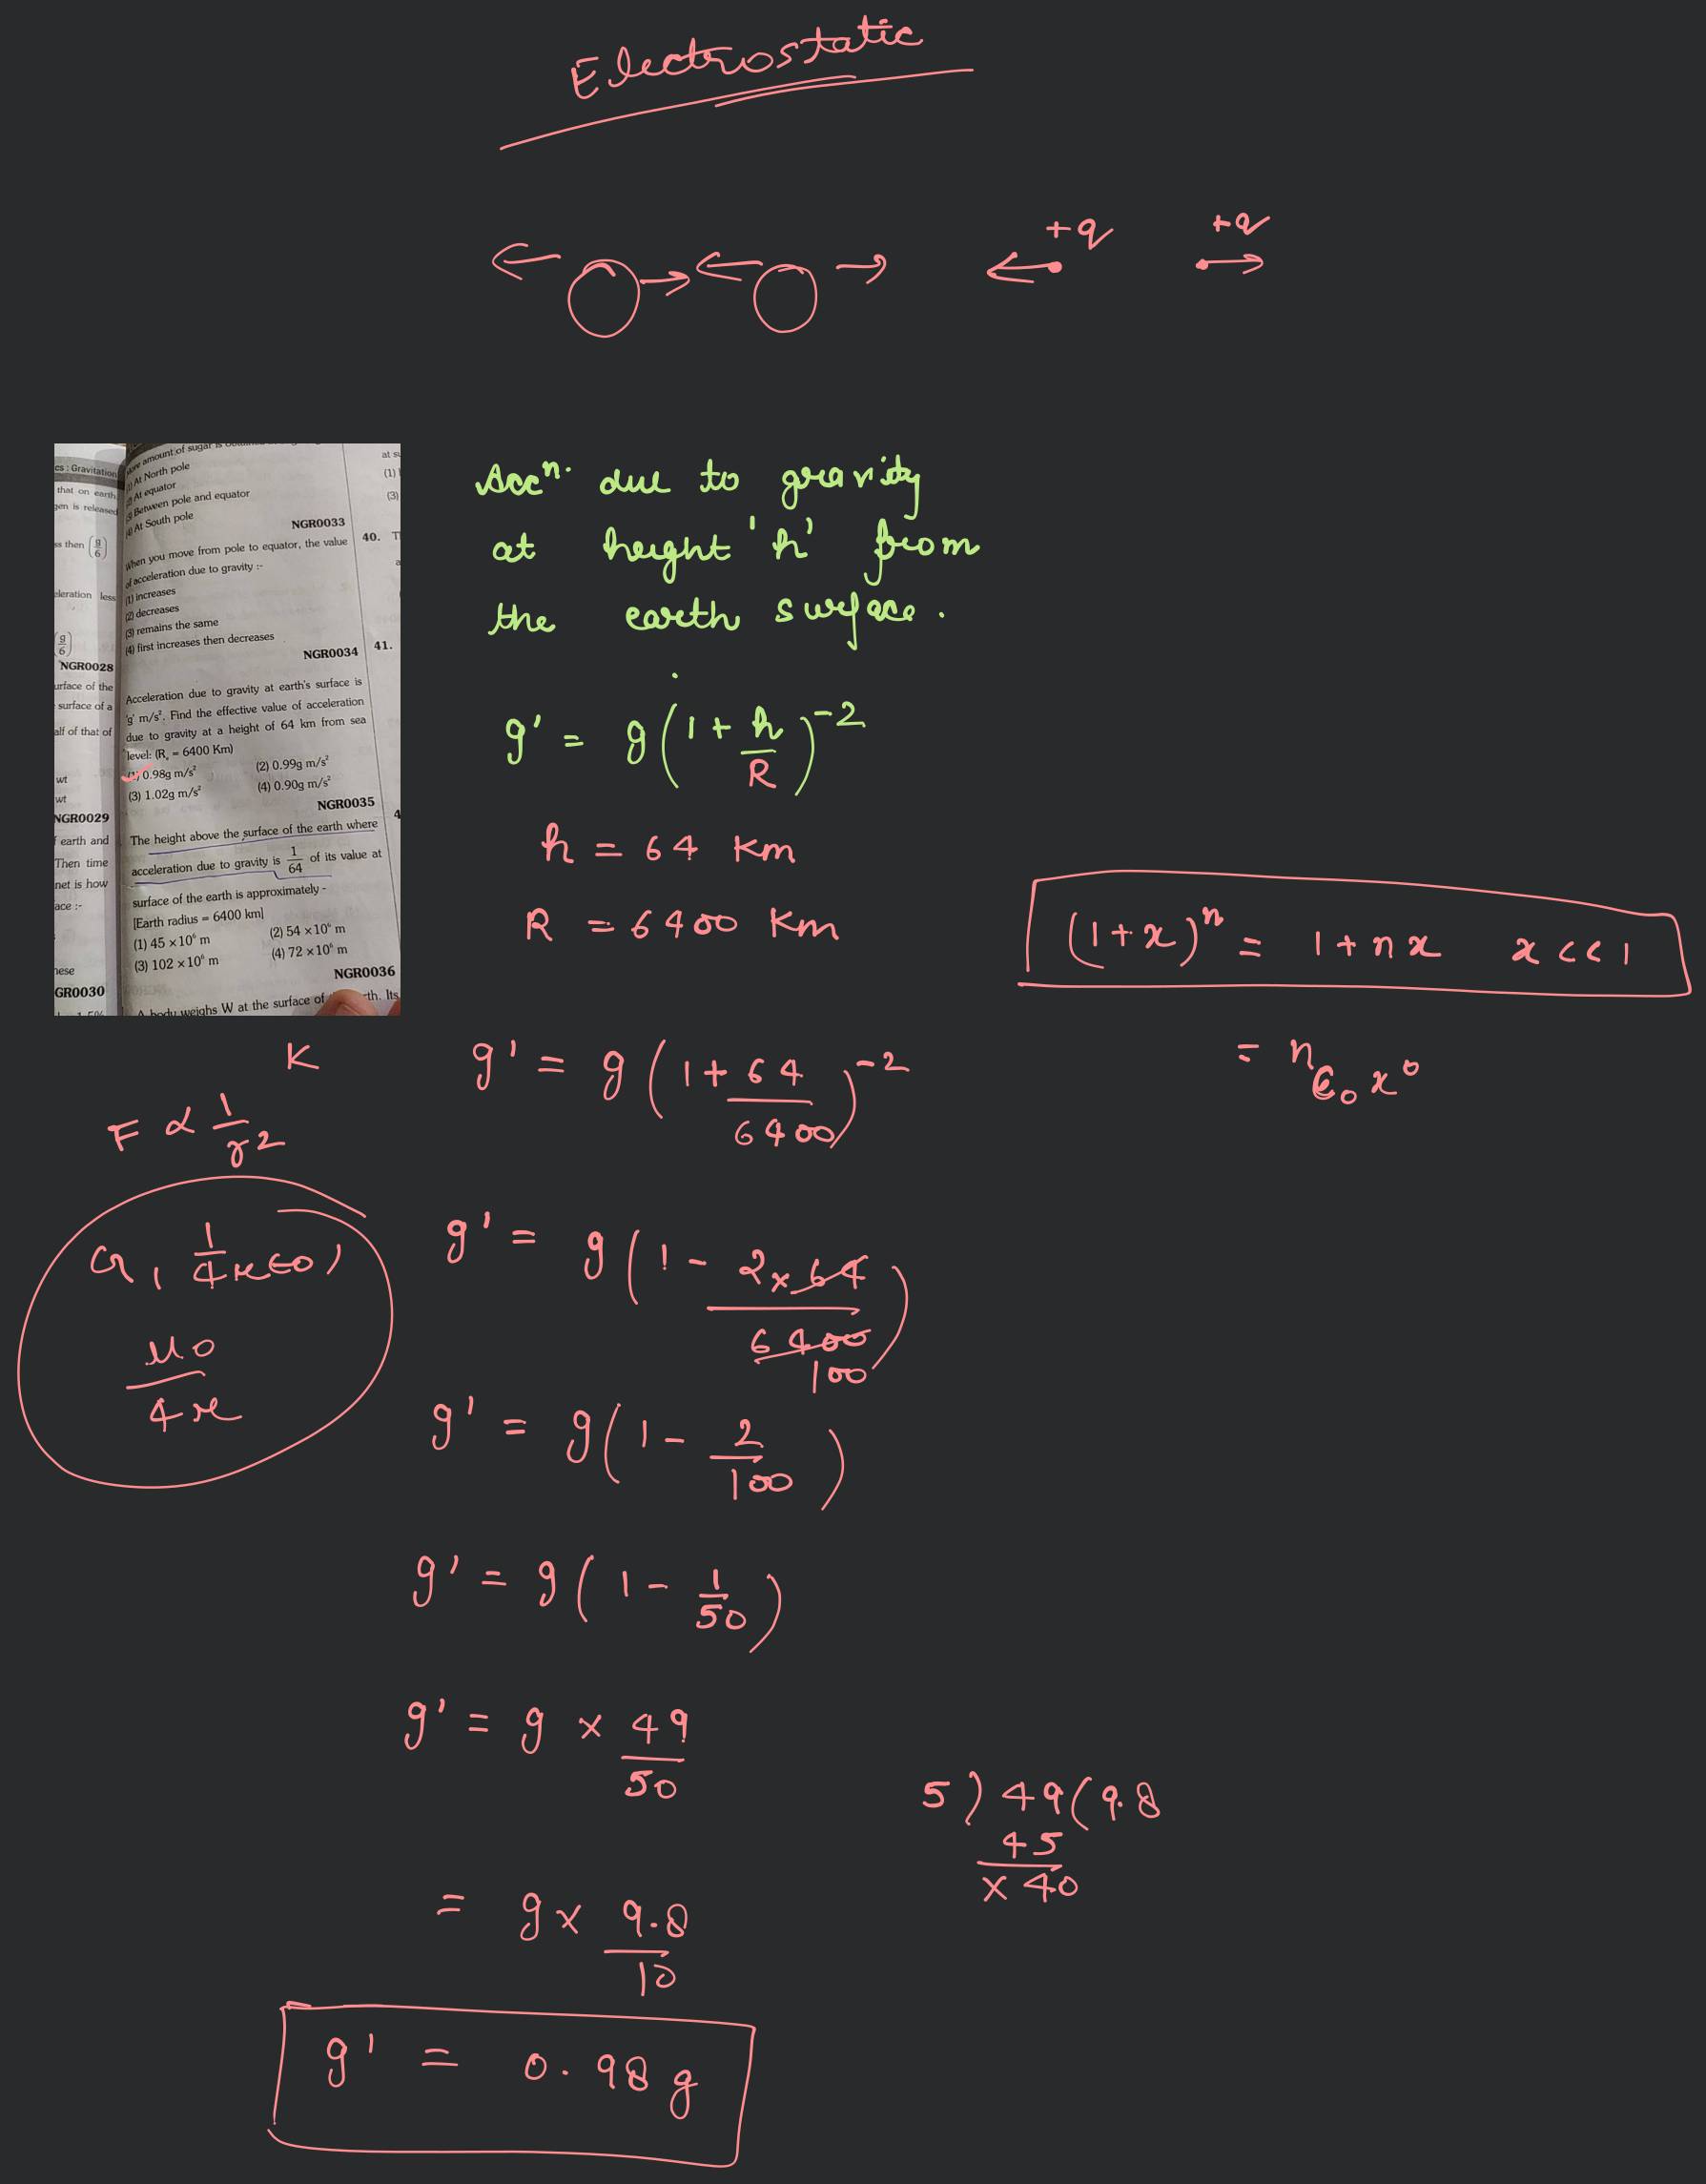 Electrostatic
+q +q
more amount of sugar is
(1) At North pole
(2) At equator
(3) Between pole and equator
(4) At South pole
NGR0033
When you move from pole to equator, the value
of acceleration due to gravity :-
(1) increases
(2) decreases
(3) remains the same
(4) first increases then decreases
NGR0034
Acceleration due to gravity at earth's surface is
'g' m/s². Find the effective value of acceleration
due to gravity at a height of 64 km from sea
level: (Rₑ = 6400 Km)
(1) 0.98g m/s² (2) 0.99g m/s²
(3) 1.02g m/s² (4) 0.90g m/s²
NGR0035
The height above the surface of the earth where
acceleration due to gravity is 1/64 of its value at
surface of the earth is approximately -
[Earth radius = 6400 km]
(1) 45 ×10⁶ m (2) 54 ×10⁶ m
(3) 102 ×10⁶ m (4) 72 ×10⁶ m
NGR0036
A body weighs W at the surface of
th. Its
es : Gravitation
that on earth
gen is released
ss then (g/6)
eleration less
(g/6)
NGR0028
urface of the
surface of a
alf of that of
wt
wt
NGR0029
earth and
Then time
net is how
ace :-
hese
GR0030
at su
(1)
(3)
40.
41.
Accⁿ. due to gravity
at height 'h' from
the earth surface.
g' = g(1 + h/R)⁻²
h = 64 Km
R = 6400 Km
(1+x)ⁿ = 1 + nx x << 1
= ⁿC₀ x⁰
K
F ∝ 1/r²
G, 1/4π∈0,
μ0/4π
g' = g(1 + 64/6400)⁻²
g' = g(1 - 2×64/6400)
100
g' = g(1 - 2/100)
g' = g(1 - 1/50)
g' = g × 49/50
5) 49 (9.8
45
× 40
= g × 9.8/10
g' = 0.98 g